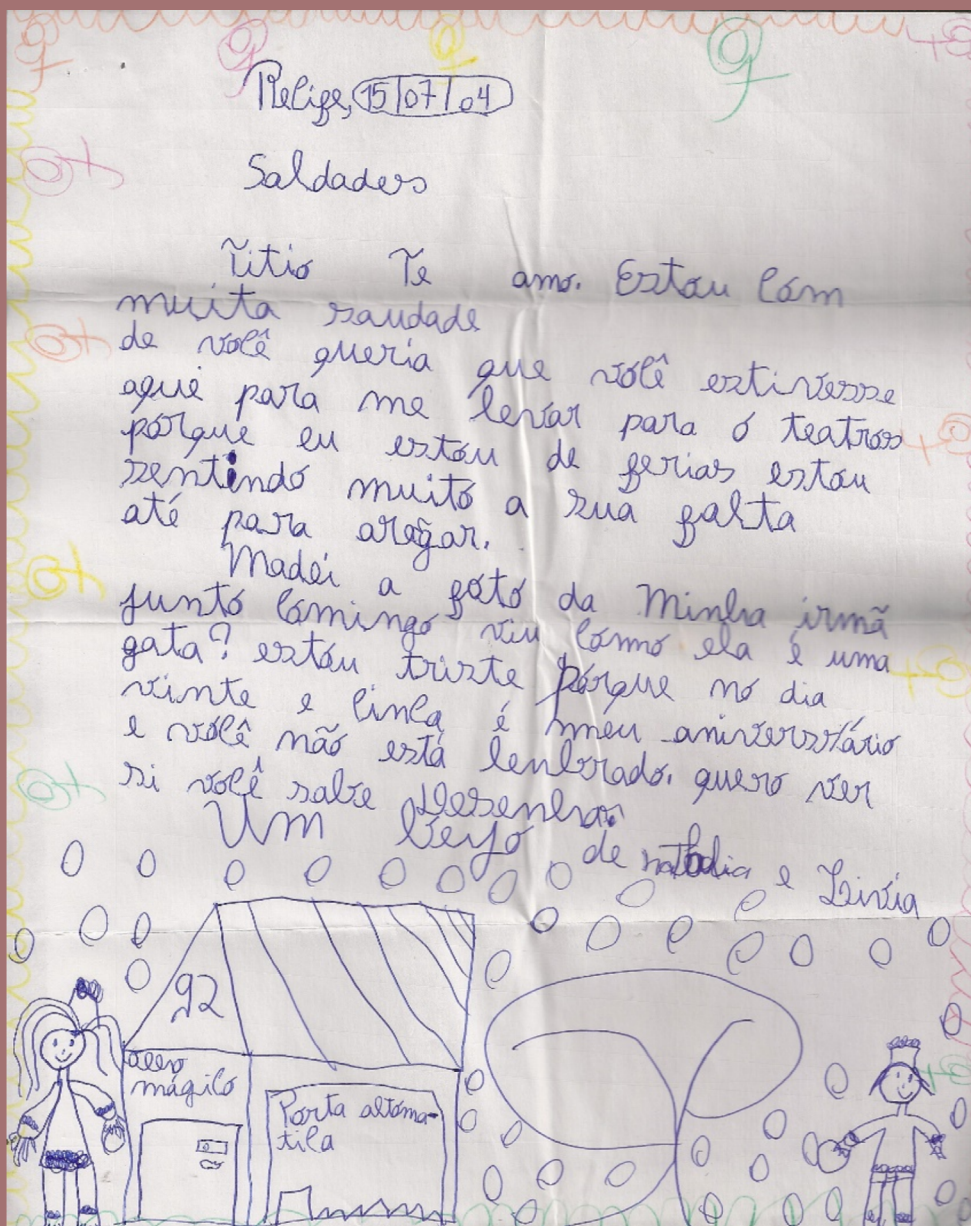 Recife, 15/07/04
Saldades
Titio Te amo. Estou com
muita saudade
de você queria que você estivesse
aqui para me levar para o teatros
porque eu estou de ferias estou
sentindo muito a sua falta
até para
Madei a foto da Minha irmã
junto comingo viu como ela é uma
gata? estou triste porque no dia
vinte e cinco é meu aniversário
e você não está lenbrado. quero ver
si você sabe Desenhar.
Um beijo de natalia e Livia
92
mágico
Porta altoma-
tica